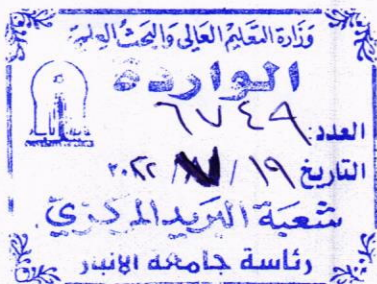 وزارة التعليم العالي والبحث العلمي
الواردة
العدد: ٦٧٤٩
التاريخ ١٩ / / ٢٠٢٢
شعبة البريد المركزي
رئاسة جامعة الانبار